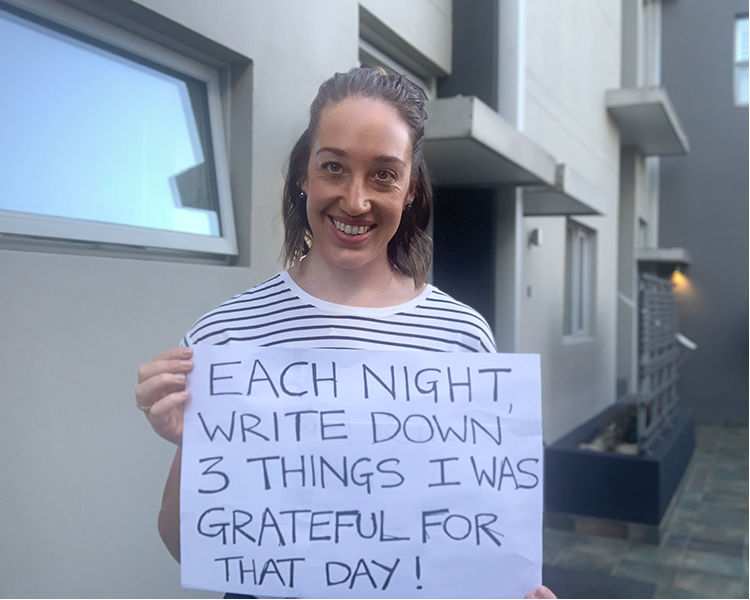 EACH NIGHT,
WRITE DOWN
3 THINGS I WAS
GRATEFUL FOR
THAT DAY!